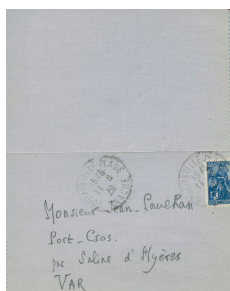 PLAGE
Monsieur Jean Paulhan
Port-Cros.
par Salins d'Hyères
VAR